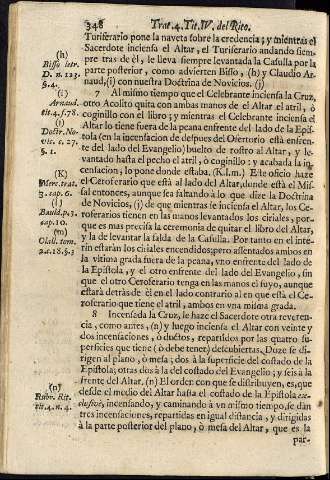 348 Trat. 4. Tit. IV. del Rito.
Turiferario pone la naveta sobre la credencia; y mientras el
Sacerdote inciensa el Altar, el Turiferario andando siem-
pre tras de èl, le lleva siempre levantada la Casulla por la
parte posterior, como advierten Bisso, (h) y Claudio Ar-
naud, (i) con nuestra Doctrina de Novicios. (j)
7 Al mismo tiempo que el Celebrante inciensa la Cruz,
otro Acolito quita con ambas manos de el Altar el atril, ò
coginillo con el libro; y mientras el Celebrante inciensa el
Altar lo tiene fuera de la peana enfrente del lado de la Epis-
tola (en la incensacion de despues del Ofertorio està enfren-
te del lado del Evangelio) buelto de rostro al Altar, y le-
vantado hasta el pecho el atril, ò coginillo: y acabada la in-
censacion, lo pone donde estaba. (K.l.m.) Este oficio haze
el Ceroferario que està al lado del Altar, donde està el Mis-
sal entonces, aunque sea faltando à lo que dize la Doctrina
de Novicios, (j) de que mientras se inciensa el Altar, los Ce-
roferarios tienen en las manos levantados los ciriales, por-
que es mas precisa la ceremonia de quitar el libro del Altar,
y la de levantar la falda de la Casulla. Por tanto en el inte-
rin estaràn los ciriales encendidos; pero assentados ambos en
la ultima grada fuera de la peana, uno enfrente del lado de
la Epistola, y el otro enfrente del lado del Evangelio, sin
que el otro Ceroferario tenga en las manos el suyo, aunque
estarà detràs de èl en el lado contrario al en que està el Ce-
roferario que tiene el atril, ambos en una misma grada.
8 Incensada la Cruz, le haze el Sacerdote otra reveren-
cia, como antes, (n) y luego inciensa el Altar con veinte y
dos incensaciones, ò ductos, repartidos por las quatro su-
perficies que tiene (ò debe tener) descubiertas. Doze se di-
rigen al plano, ò mesa; dos à la superficie del costado de la
Epistola; otras dos à la del costado del Evangelio; y seis à la
frente del Altar. (n) El orden con que se distribuyen, es, que
desde el medio del Altar hasta el costado de la Epistola ex-
clusivè, incensando, y caminando à un mismo tiempo, se dàn
tres incensaciones, repartidas en igual distancia, y dirigidas
à la parte posterior del plano, ò mesa del Altar, que es la
par-
(h)
Bisso letr.
D. n. 123.
§. 4.
(i)
Arnaud.
tit. 4. f. 78.
(j)
Doctr. No-
vic. c. 27.
§. 1.
(K)
Merc. trat.
3. cap. 6.
(l)
Bauld. p. 3.
cap. 10.
(m)
Olall. tom.
(n)
Rubr. Rit.
tit. 4. n. 4.